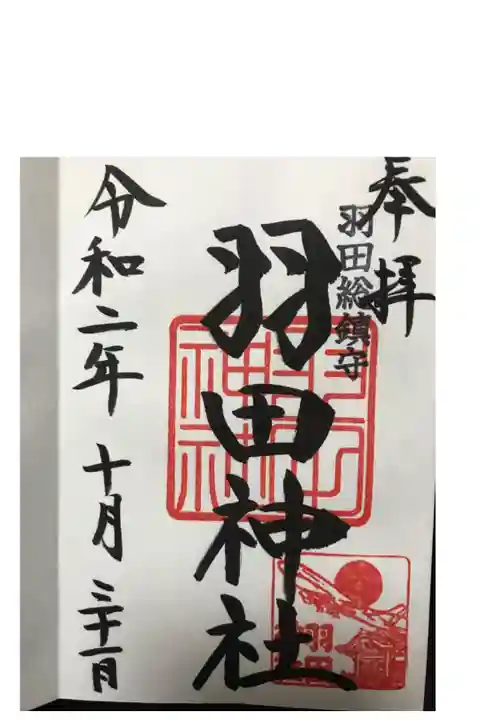 奉拝
羽田総鎮守
羽田神社
令和二年十月三十一日
羽田